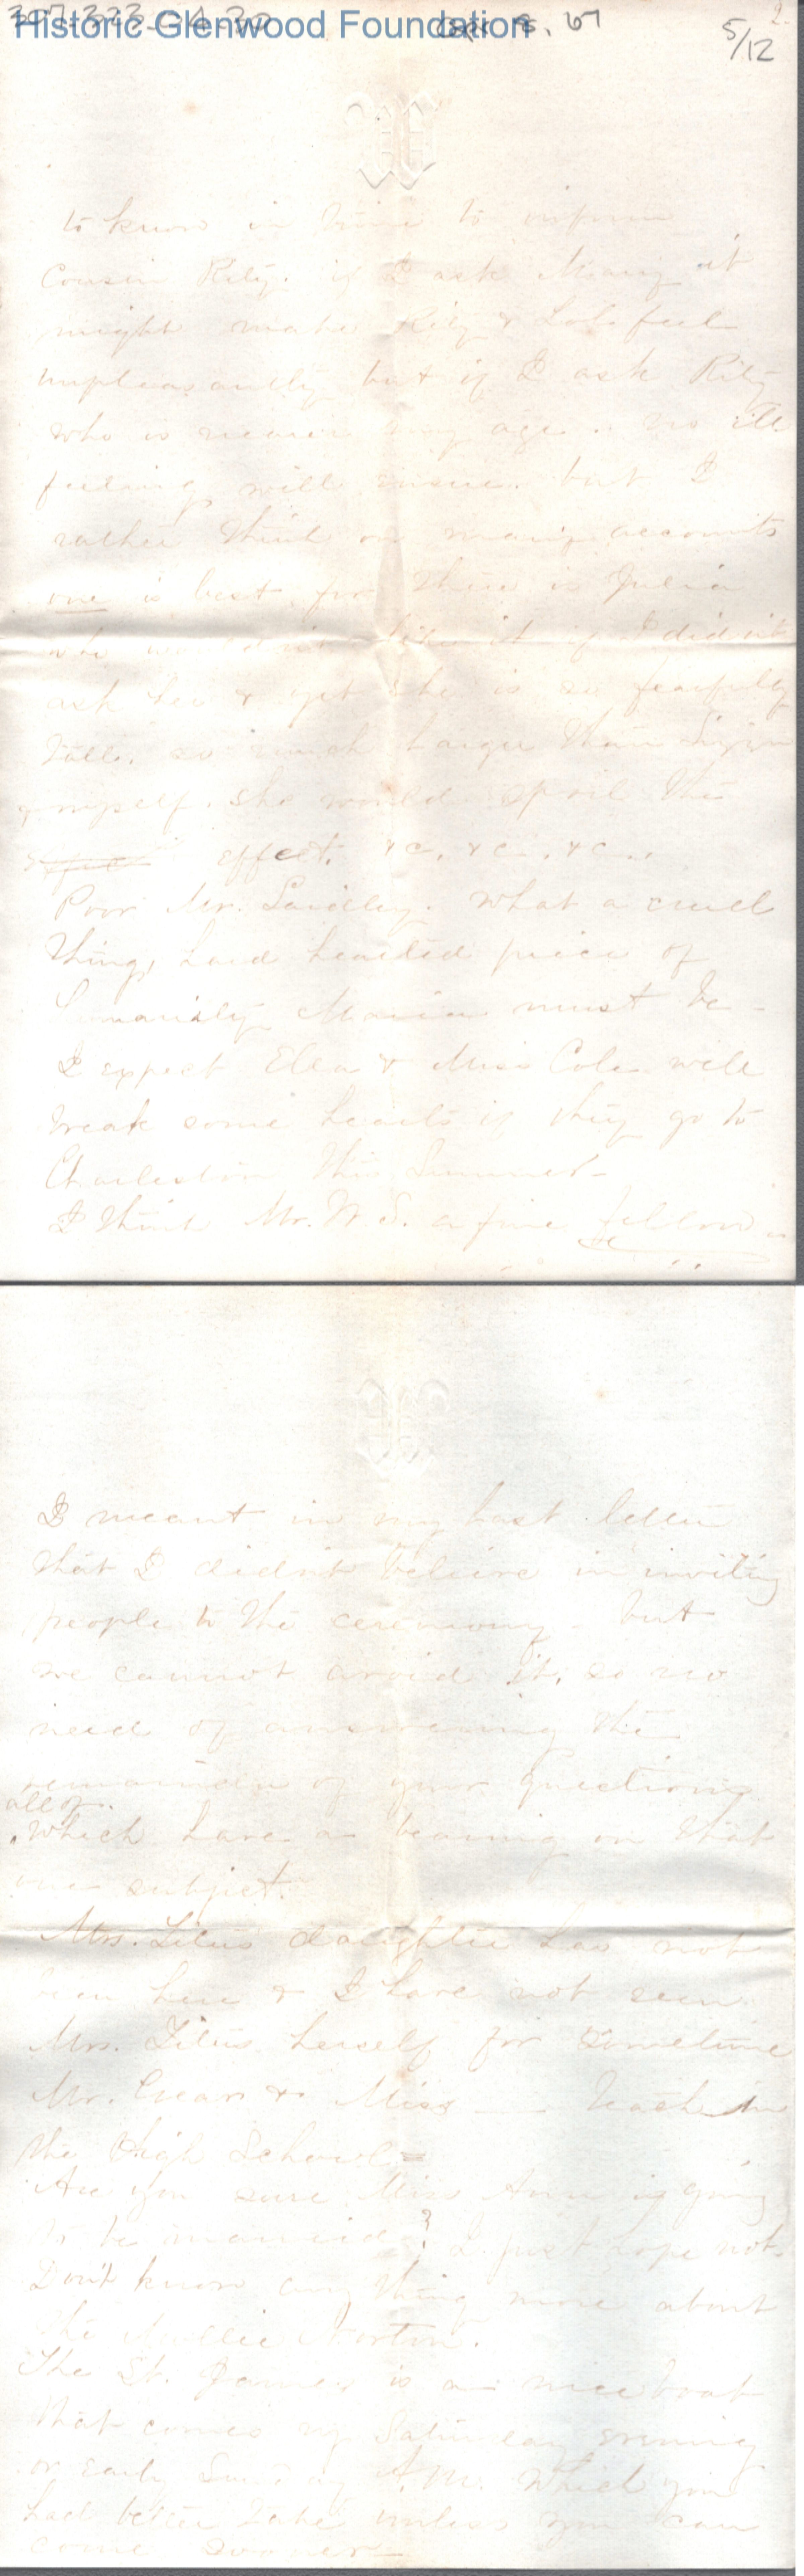 Historic Glenwood Foundation
5/12
2.
W
to know in time to inform
Cousin Rily. if I ask Mary it
might make Rily & Lol feel
unpleasantly but if I ask Rily
who is nearer my age. no ill
feeling will ensue. but I
rather think on many accounts
one is best, for there is Julia
who wouldn't like it if I didn't
ask her & yet she is so fearfully
tall. so much larger than
& myself. she would spoil the
effect. &c, &c, &c..
Poor Mr. Laidley. What a cruel
thing, hard hearted piece of
humanity Maria must be -
I expect Ella & Miss Cole will
break some hearts if they go to
Charleston this Summer -
I think Mr. W. S. a fine fellow
I meant in my last letter
that I didn't believe in inviting
people to the ceremony - but
we cannot avoid it, so no
need of answering the
remainder of your questions
all of
which have a bearing on that
one subject.
Mrs. Titus daughter has not
been here & I have not seen
Mrs. Titus herself for sometime
Mr. & Miss — teach in
the High School -
Are you sure Miss Ann is going
to be married? I just hope not.
Don't know any thing more about
the Mollie Norton.
The St. James is a nice boat
that comes up Saturday evening
or early Sunday A.M. which you
had better take unless you can
come sooner -